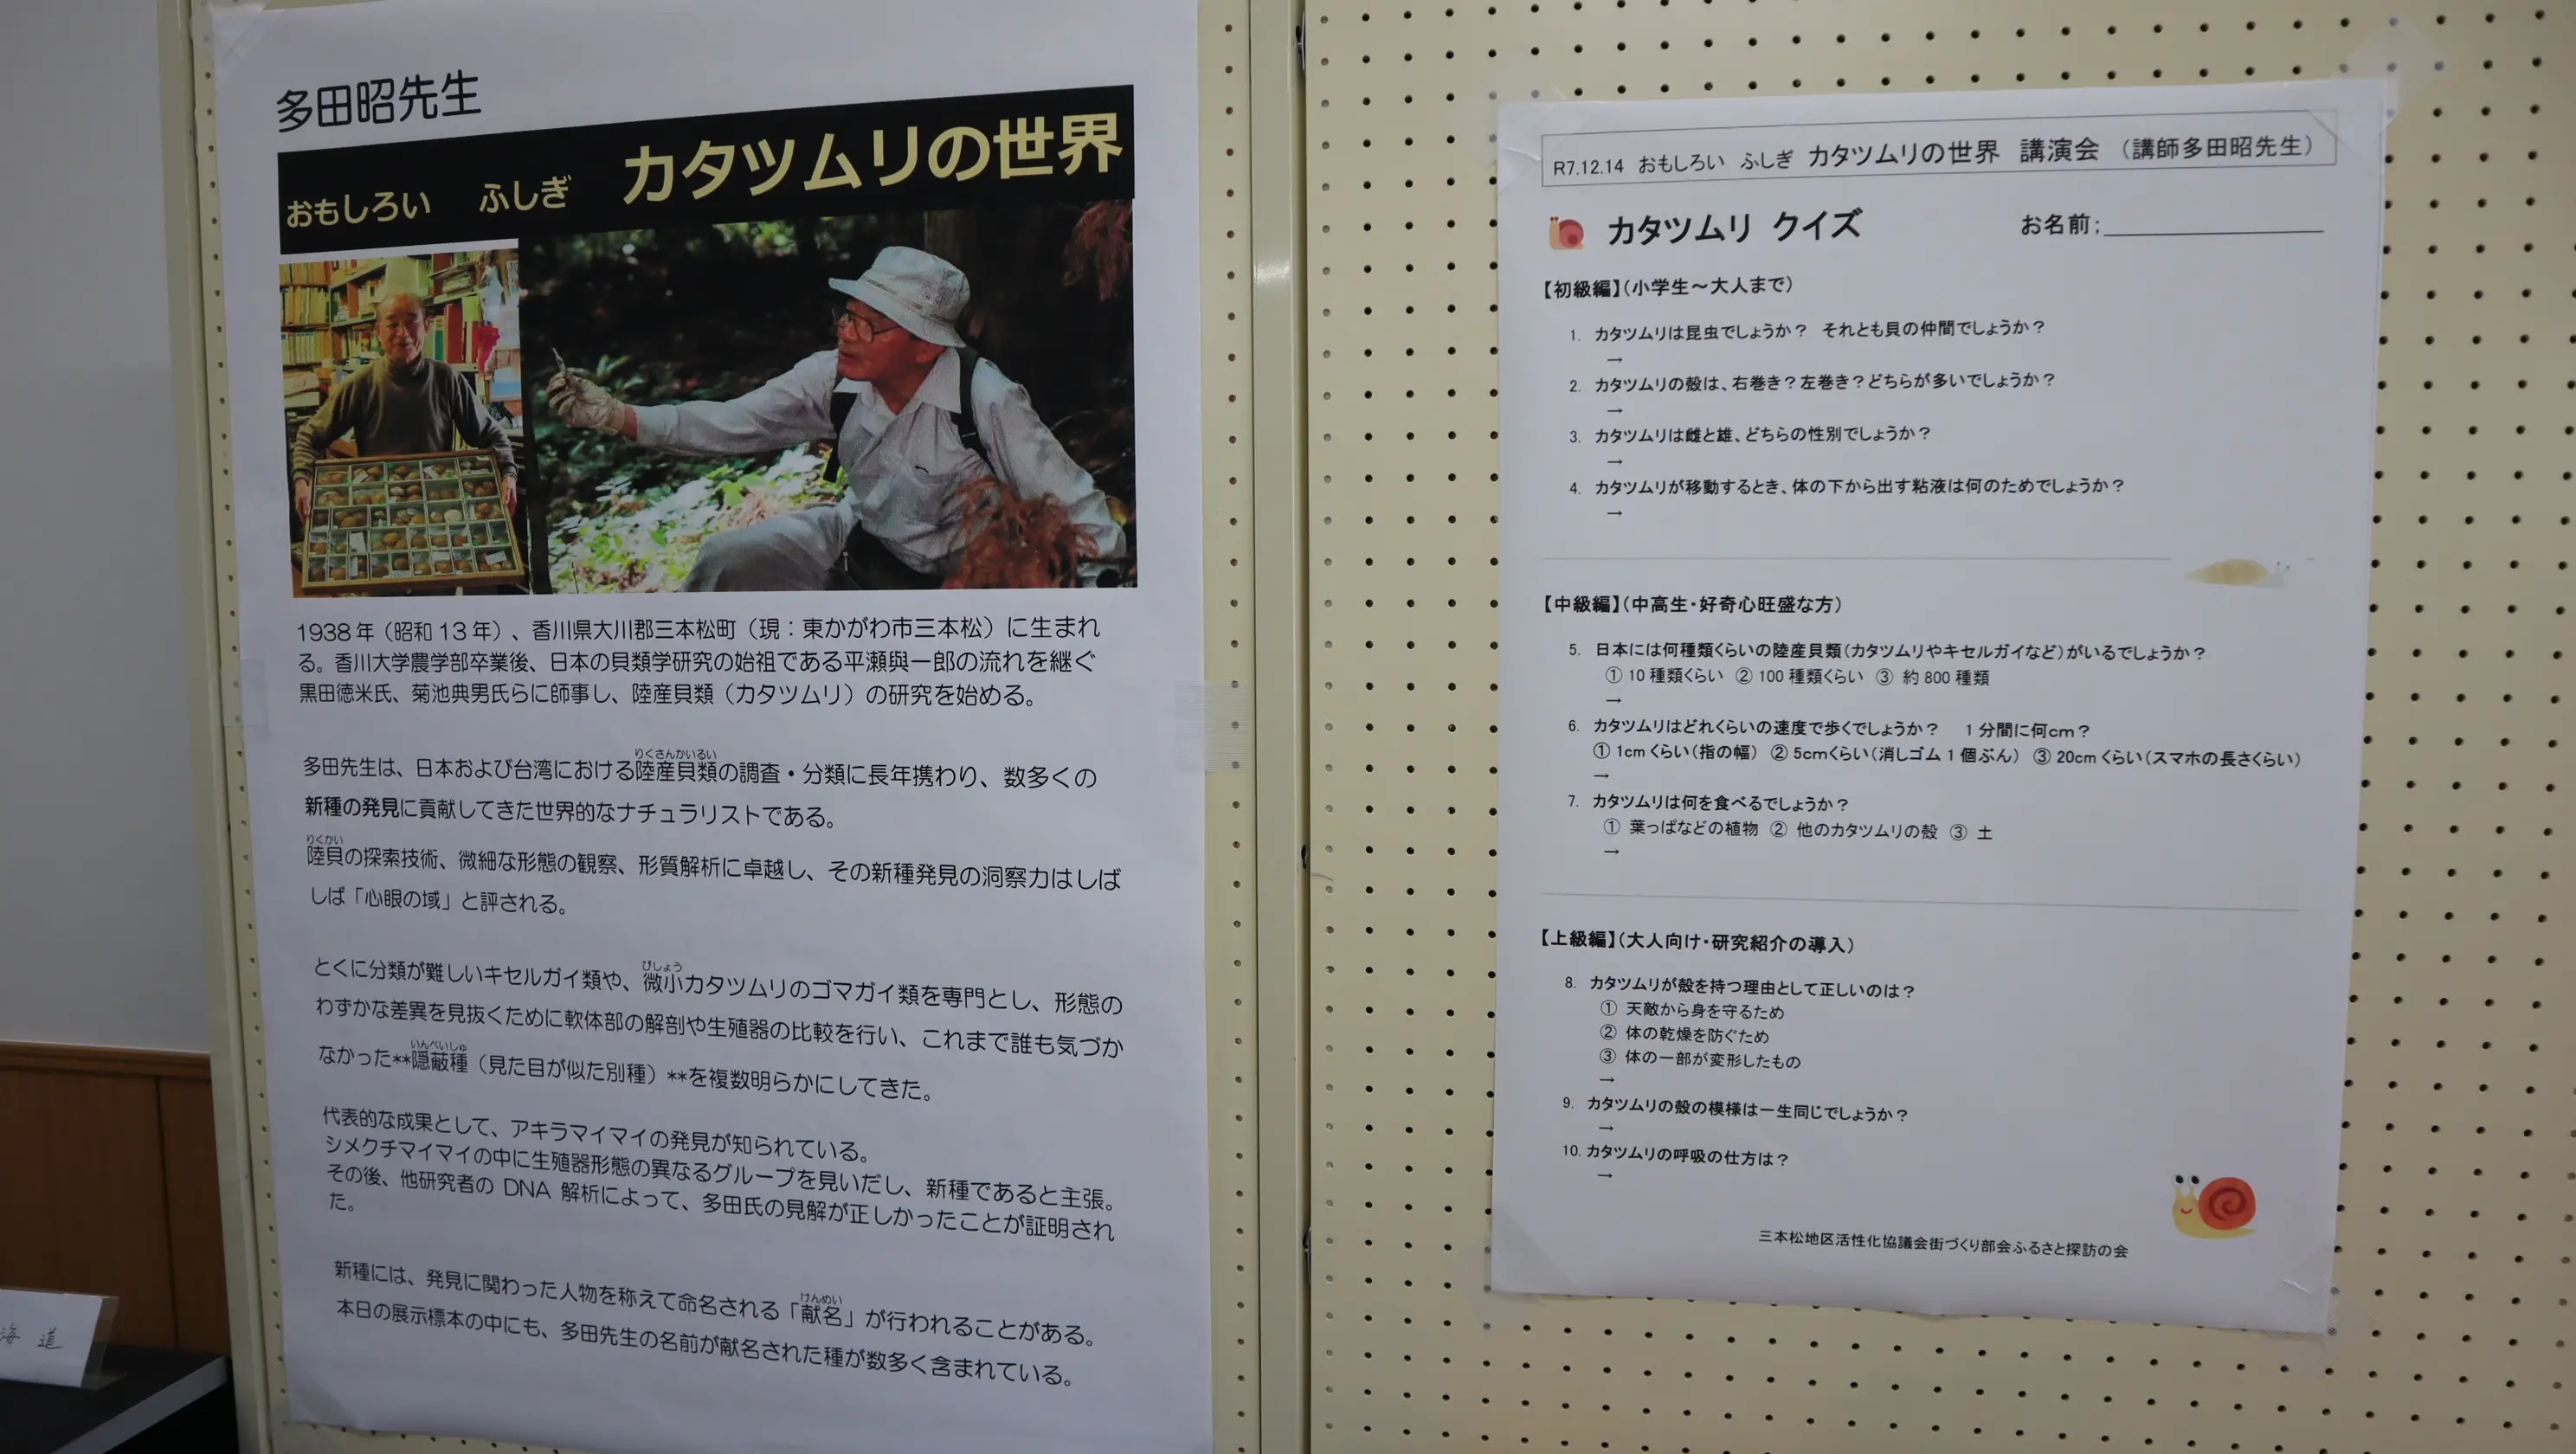 多田昭先生
おもしろい ふしぎ カタツムリの世界
1938年（昭和13年）、香川県大川郡三本松町（現：東かがわ市三本松）に生まれ
る。香川大学農学部卒業後、日本の貝類学研究の始祖である平瀬與一郎の流れを継ぐ
黒田徳米氏、菊池典男氏らに師事し、陸産貝類（カタツムリ）の研究を始める。
りくさんかいるい
多田先生は、日本および台湾における陸産貝類の調査・分類に長年携わり、数多くの
新種の発見に貢献してきた世界的なナチュラリストである。
りくかい
陸貝の探索技術、微細な形態の観察、形質解析に卓越し、その新種発見の洞察力はしば
しば「心眼の域」と評される。
びしょう
とくに分類が難しいキセルガイ類や、微小カタツムリのゴマガイ類を専門とし、形態の
わずかな差異を見抜くために軟体部の解剖や生殖器の比較を行い、これまで誰も気づか
いんぺいしゅ
なかった**隠蔽種（見た目が似た別種）**を複数明らかにしてきた。
代表的な成果として、アキラマイマイの発見が知られている。
シメクチマイマイの中に生殖器形態の異なるグループを見いだし、新種であると主張。
その後、他研究者の DNA 解析によって、多田氏の見解が正しかったことが証明され
た。
けんめい
新種には、発見に関わった人物を称えて命名される「献名」が行われることがある。
本日の展示標本の中にも、多田先生の名前が献名された種が数多く含まれている。
海 道
R7.12.14 おもしろい ふしぎ カタツムリの世界 講演会 （講師多田昭先生）
カタツムリ クイズ お名前;
【初級編】（小学生～大人まで）
1. カタツムリは昆虫でしょうか？ それとも貝の仲間でしょうか？
→
2. カタツムリの殻は、右巻き？左巻き？どちらが多いでしょうか？
→
3. カタツムリは雌と雄、どちらの性別でしょうか？
→
4. カタツムリが移動するとき、体の下から出す粘液は何のためでしょうか？
→
【中級編】（中高生・好奇心旺盛な方）
5. 日本には何種類くらいの陸産貝類（カタツムリやキセルガイなど）がいるでしょうか？
① 10 種類くらい ② 100 種類くらい ③ 約 800 種類
→
6. カタツムリはどれくらいの速度で歩くでしょうか？ 1分間に何cm？
① 1cm くらい（指の幅） ② 5cmくらい（消しゴム 1 個ぶん） ③ 20cm くらい（スマホの長さくらい）
→
7. カタツムリは何を食べるでしょうか？
① 葉っぱなどの植物 ② 他のカタツムリの殻 ③ 土
→
【上級編】（大人向け・研究紹介の導入）
8. カタツムリが殻を持つ理由として正しいのは？
① 天敵から身を守るため
② 体の乾燥を防ぐため
③ 体の一部が変形したもの
→
9. カタツムリの殻の模様は一生同じでしょうか？
→
10. カタツムリの呼吸の仕方は？
→
三本松地区活性化協議会街づくり部会ふるさと探訪の会